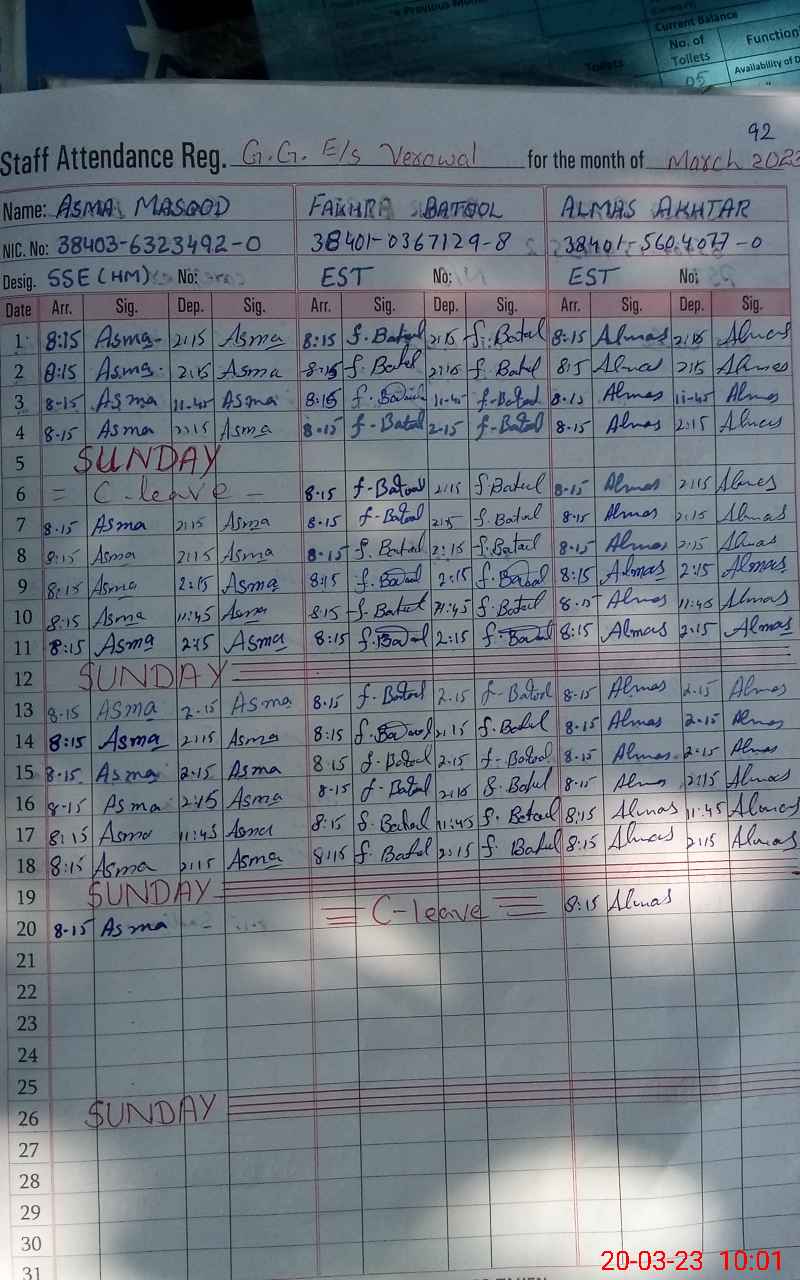 Previous
Current Balance
No. of Toilets
Function
Toilets
05
Availability of D
92
Staff Attendance Reg. G.G. E/s Verowal for the month of March 2023
Name: ASMA MASOOD FAKHRA BATOOL ALMAS AKHTAR
NIC. No: 38403-6323492-0 38401-0367129-8 38401-5604077-0
Desig. SSE (HM) No: EST No: EST No:
Date Arr. Sig. Dep. Sig. Arr. Sig. Dep. Sig. Arr. Sig. Dep. Sig.
1 8:15 Asma 2:15 Asma 8:15 f. Batool 2:15 f. Batool 8-15 Almas 2:15 Almas
2 8:15 Asma 2:15 Asma 8-15 f. Batol 2:15 f. Batol 8:15 Almas 2:15 Almas
3 8-15 Asma 11-45 Asma 8:15 f. Batool 11-45 f-Batool 8-15 Almas 11-45 Almas
4 8-15 Asma 2:15 Asma 8-15 f-Batool 2-15 f-Batool 8-15 Almas 2:15 Almas
5 SUNDAY
6 = C-leave - 8-15 f-Batool 2:15 f. Batool 8-15 Almas 2:15 Almas
7 8-15 Asma 2:15 Asma 8-15 f-Batool 2:15 f. Batool 8-15 Almas 2:15 Almas
8 8:15 Asma 2:15 Asma 8-15 f. Batool 2:15 f. Batool 8-15 Almas 2:15 Almas
9 8:15 Asma 2:15 Asma 8:15 f. Batool 2:15 f. Batool 8:15 Almas 2:15 Almas
10 8:15 Asma 11:45 Asma 8:15 f. Batool 11:45 f. Batool 8-15 Almas 11:45 Almas
11 8:15 Asma 2:15 Asma 8:15 f. Batool 2:15 f. Batool 8:15 Almas 2:15 Almas
12 SUNDAY
13 8-15 Asma 2-15 Asma 8-15 f-Batool 2-15 f-Batool 8-15 Almas 2-15 Almas
14 8:15 Asma 2:15 Asma 8:15 f. Batool 2:15 f. Batool 8-15 Almas 2-15 Almas
15 8-15 Asma 2:15 Asma 8 15 f-Batool 2-15 f-Batool 8-15 Almas 2-15 Almas
16 8-15 Asma 2:15 Asma 8-15 f-Batool 2-15 f. Batool 8-15 Almas 2:15 Almas
17 8:15 Asma 11:45 Asma 8:15 f. Batool 11:45 f. Batool 8:15 Almas 11:45 Almas
18 8:15 Asma 2:15 Asma 8:15 f. Batool 2:15 f. Batool 8:15 Almas 2:15 Almas
19 SUNDAY
20 8-15 Asma - C-leave 8:15 Almas
21
22
23
24
25
26 SUNDAY
27
28
29
30
31
20-03-23 10:01